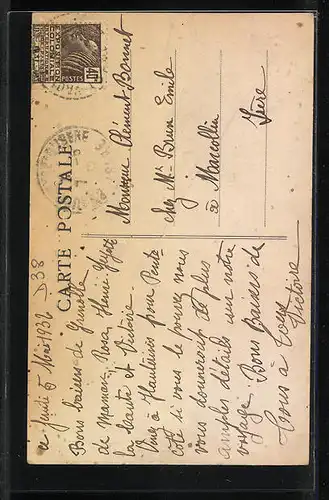 CARTE POSTALE
ce Jeudi 5 Mai 1932
D38
Bons baisers de Grenoble
de Maman, Rosa, Henri
la Santé et Victoire.
à Hauterives pour Pente
Côte si vous le pouvez nous
vous donnerons de plus
amples détails sur notre
voyage. Bons Baisers de
tous à tous
Victoire
Monsieur Clément Bonnet
chez Mr Brun Emile
à Marcollin
Isère
POSTES